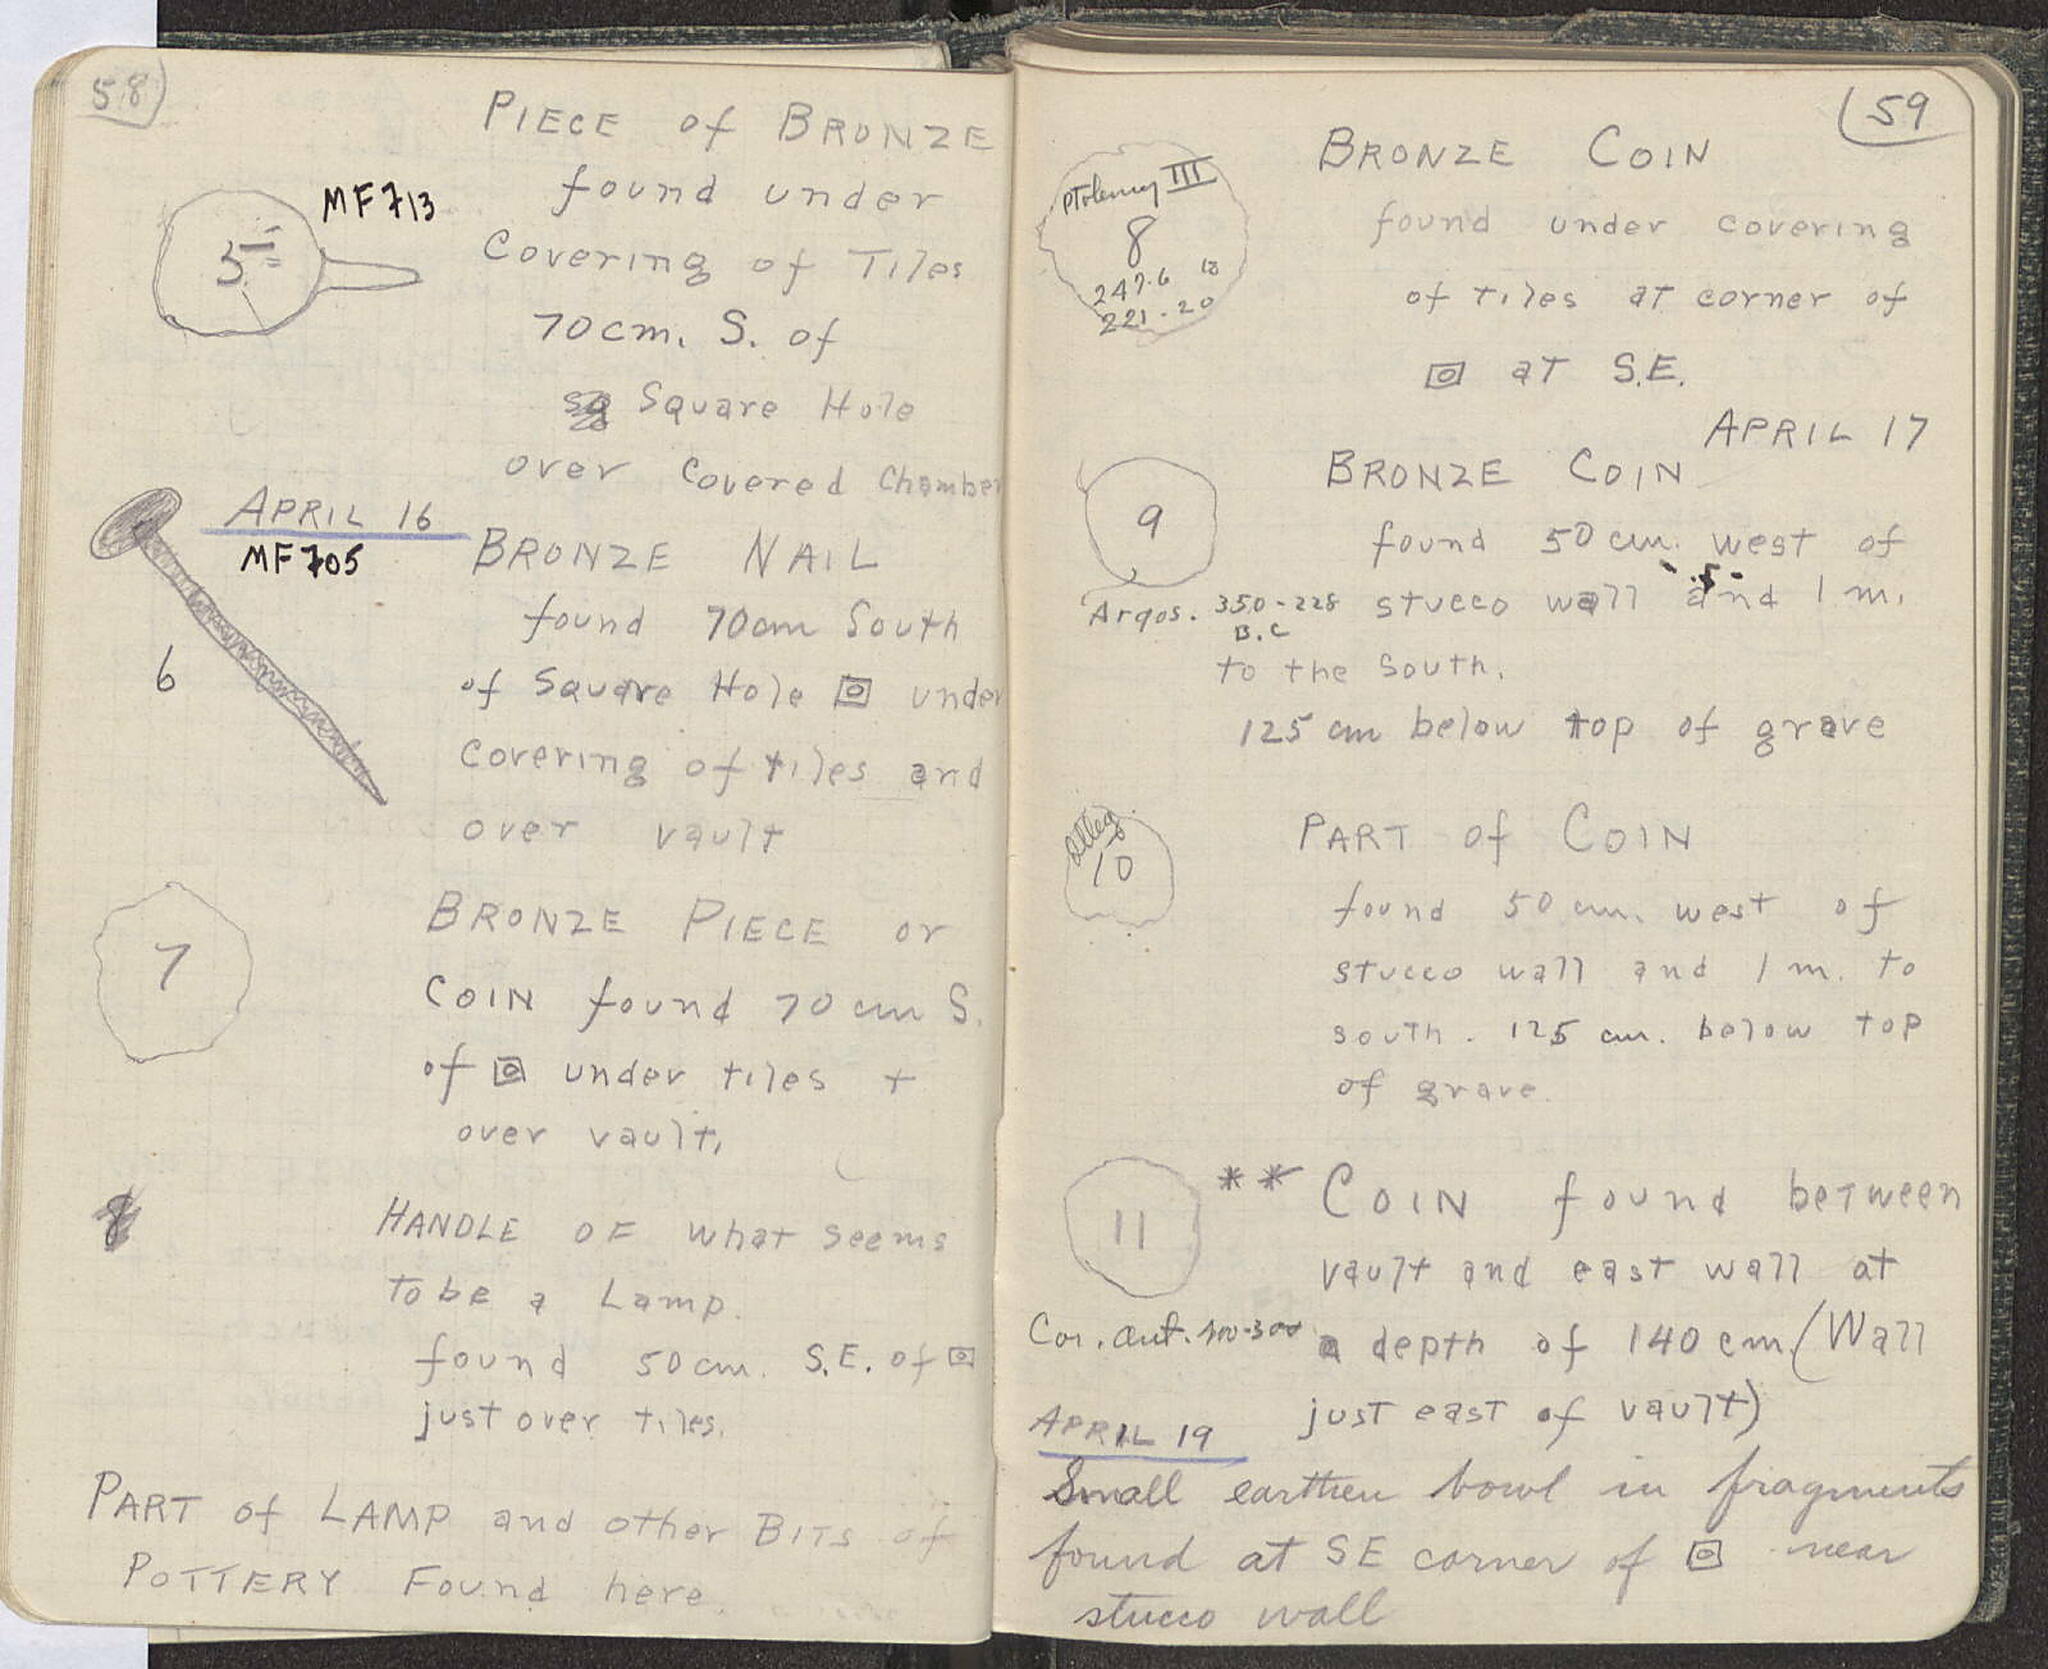 58
PIECE of BRONZE
found under
MF 713
5
Covering of Tiles
70 cm. S. of
Square Hole
over Covered Chamber
APRIL 16
MF 705
BRONZE NAIL
found 70cm South
6
of Square Hole under
Covering of tiles and
over vault
7
BRONZE PIECE or
COIN found 70 cm S.
of under tiles +
over vault.
8
HANDLE OF what seems
to be a Lamp.
found 50 cm. S.E. of
just over tiles.
PART of LAMP and other BITS of
POTTERY Found here.
59
BRONZE COIN
Ptolemy III
8
247.6
221-20
found under covering
of tiles at corner of
at S.E.
APRIL 17
BRONZE COIN
9
found 50 cm. west of
Argos. 350-228
B.C
stucco wall and 1 m.
to the South.
125 cm below top of grave
10
PART of COIN
found 50 cm. west of
stucco wall and 1 m. to
south. 125 cm. below top
of grave.
11
** COIN found between
vault and east wall at
Cor. Aut. 400-300
a depth of 140 cm. (Wall
just east of vault)
APRIL 19
Small earthen bowl in fragments
found at SE corner of near
stucco wall